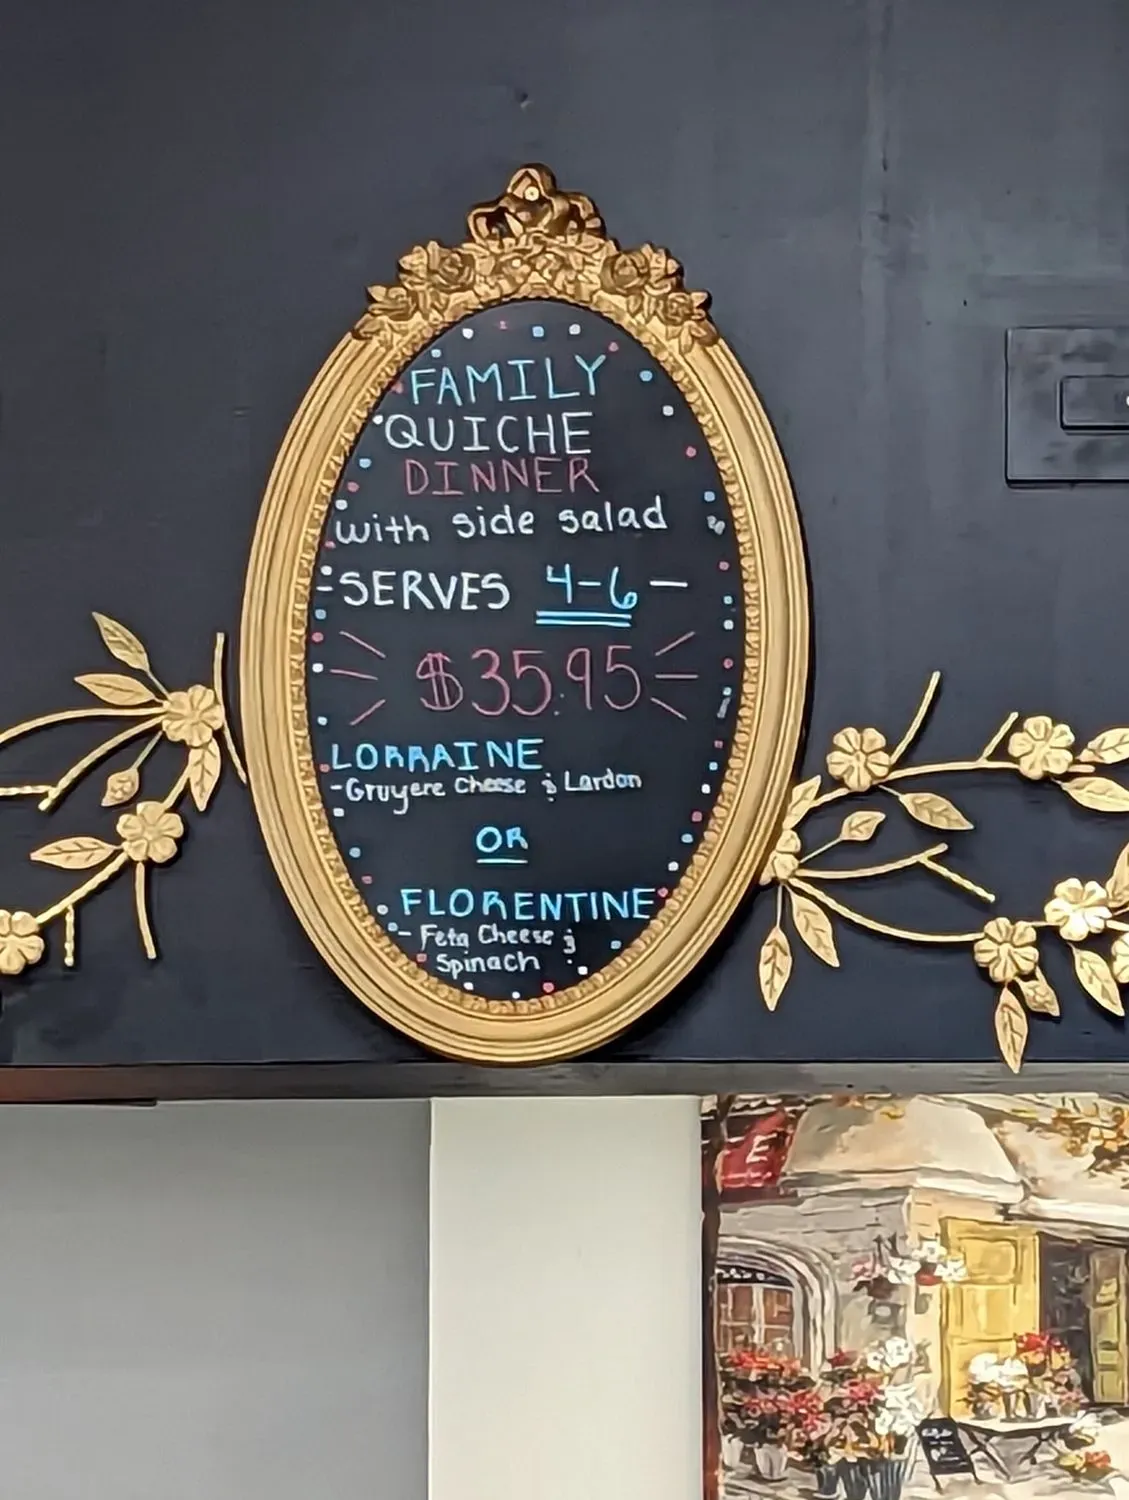 FAMILY
QUICHE
DINNER
with side salad
-SERVES 4-6-
$35.95
LORRAINE
-Gruyere Cheese & Lardon
OR
FLORENTINE
- Feta Cheese &
Spinach
E